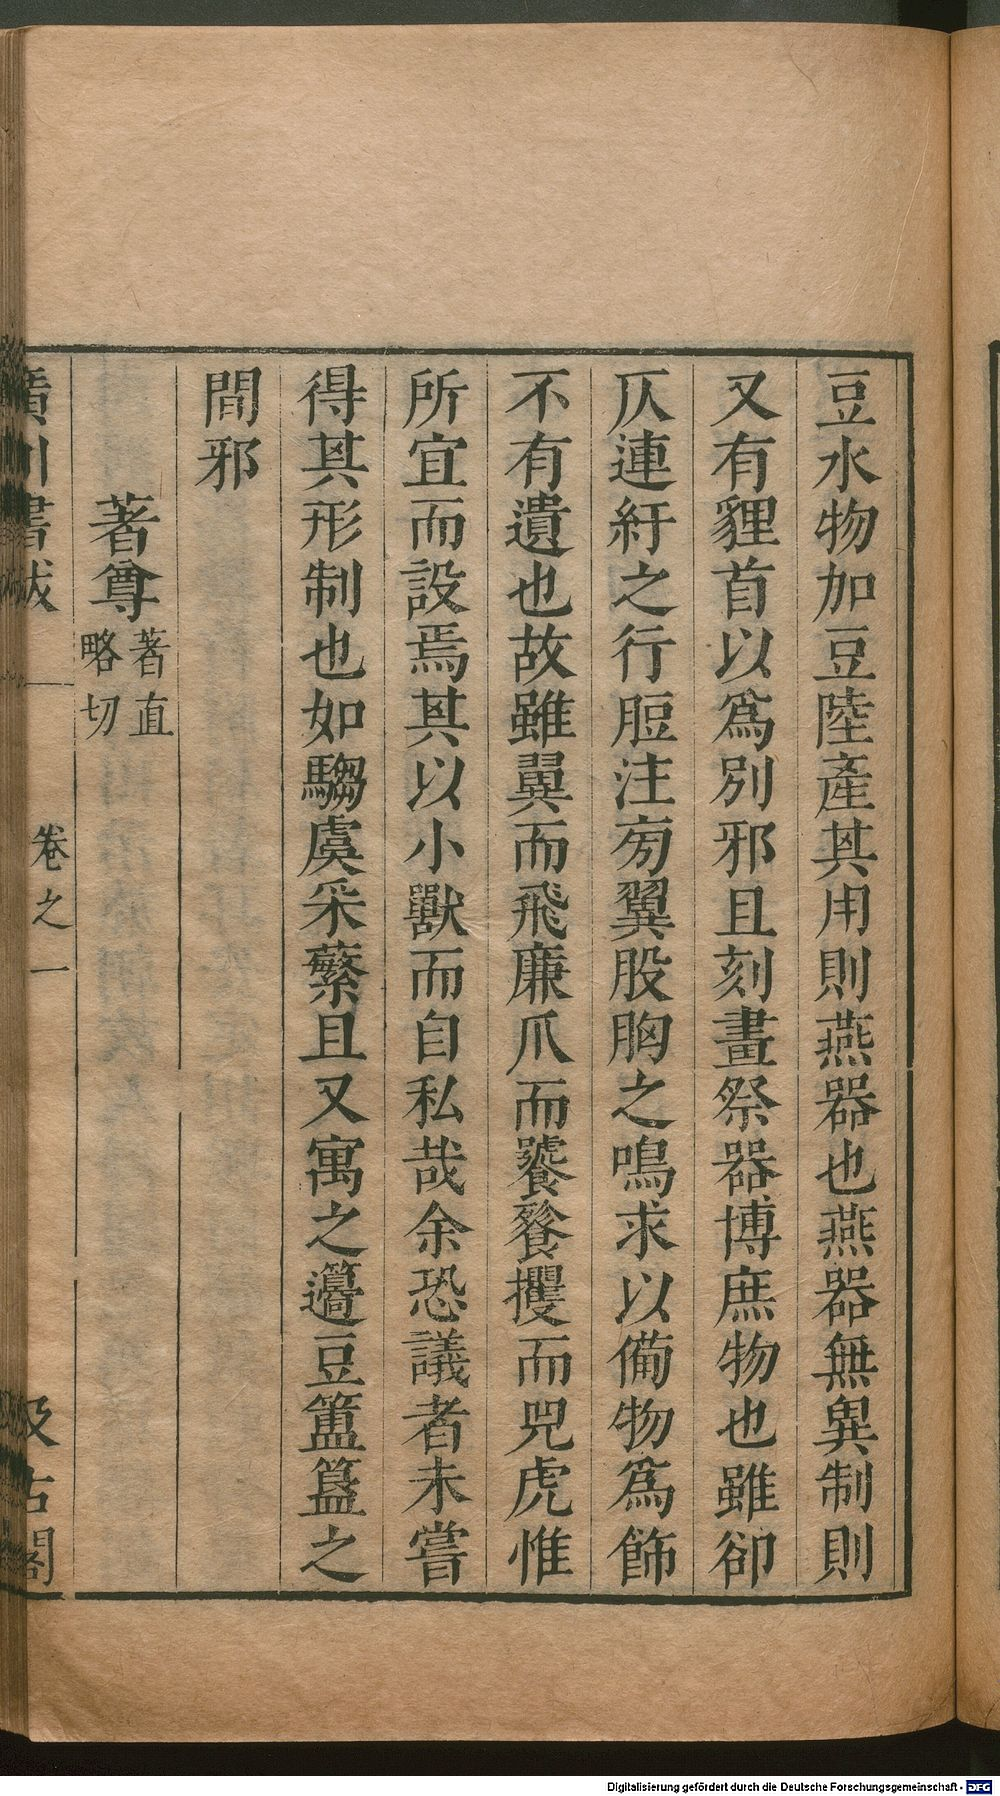 豆水物加豆陸產其用則燕器也燕器無異制則
又有貍首以爲別邪且刻畫祭器博庶物也雖卻
仄連紆之行脰注㫄翼股胸之鳴求以備物爲飾
不有遺也故雖翼而飛廉爪而饕餮攫而兕虎惟
所宜而設焉其以小獸而自私哉余恐議者未嘗
得其形制也如騶虞采蘩且又寓之籩豆簠簋之
間邪
著尊 著直略切
廣川書跋 卷之一 汲古閣
Digitalisierung gefördert durch die Deutsche Forschungsgemeinschaft - DFG